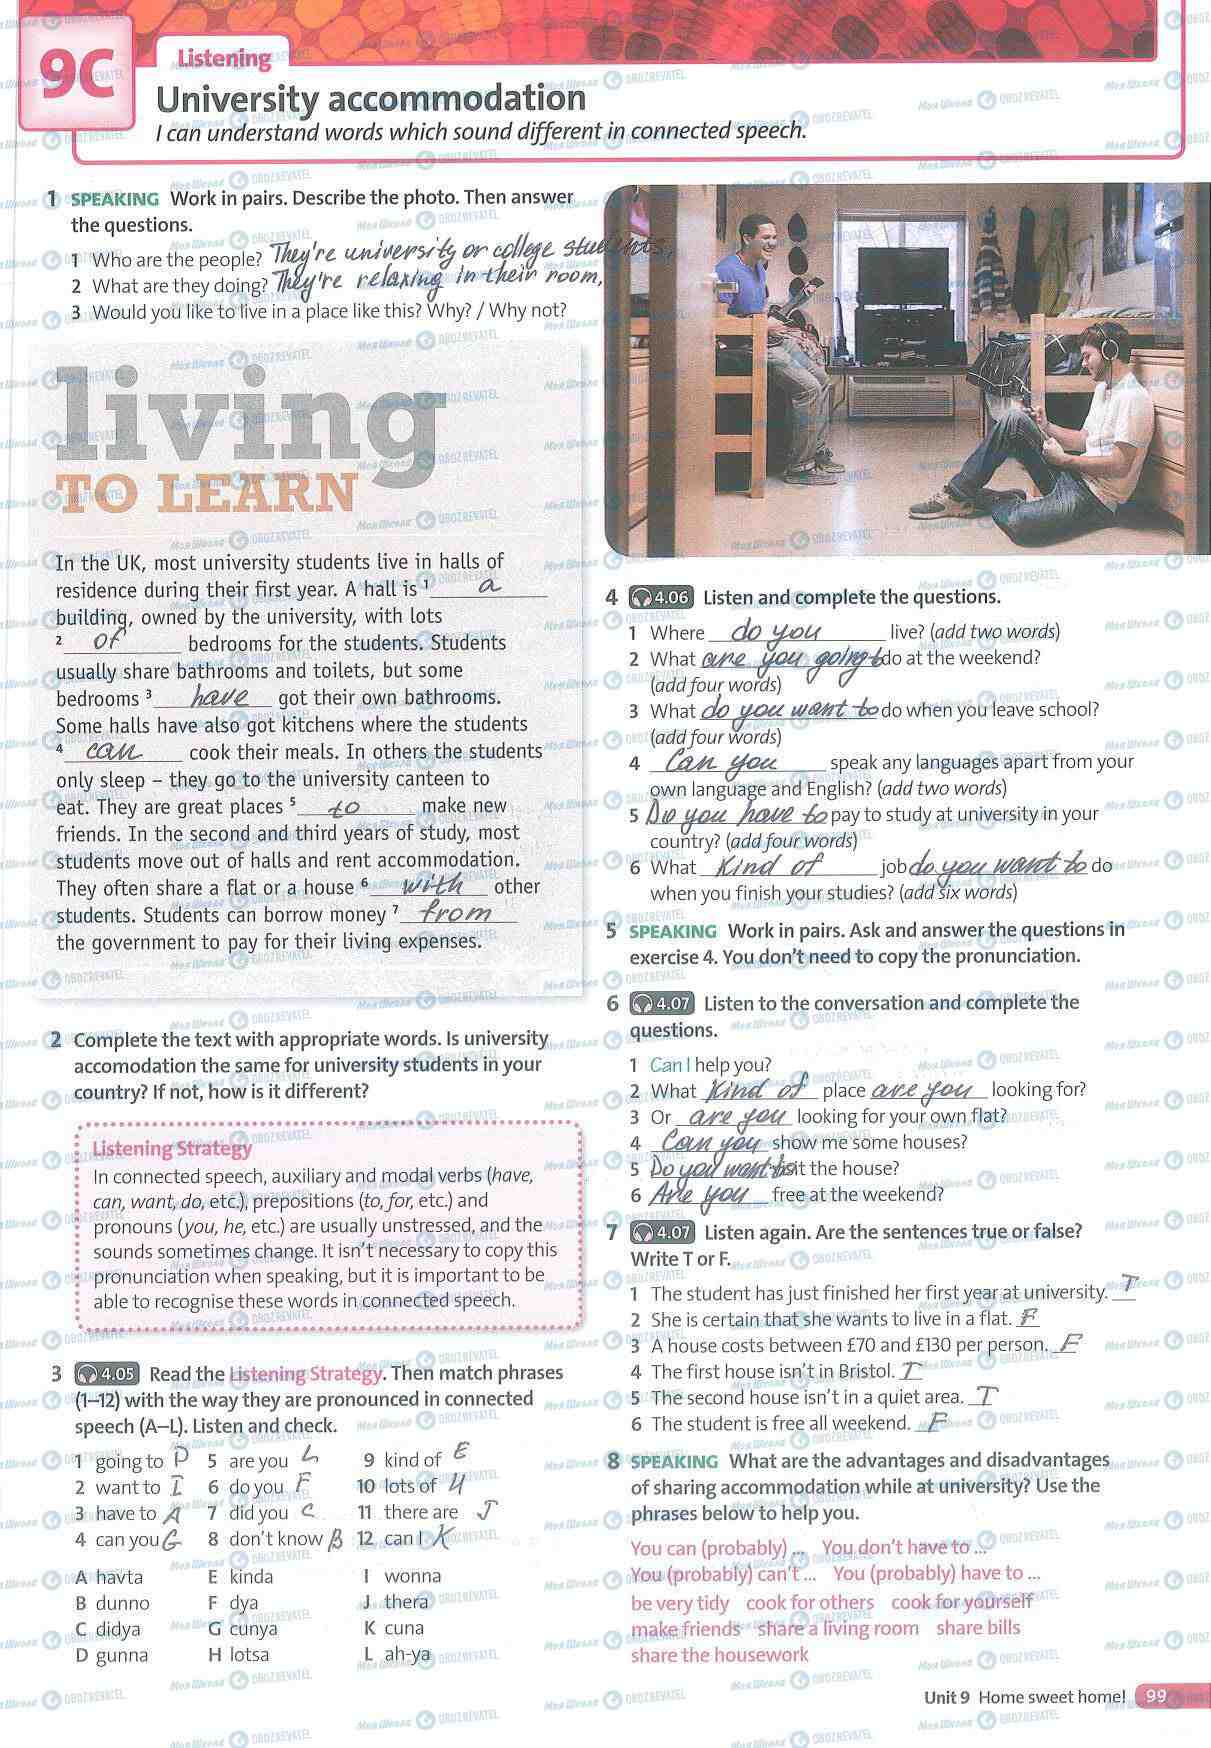 9C
Listening
University accommodation
I can understand words which sound different in connected speech.
1 SPEAKING Work in pairs. Describe the photo. Then answer
the questions.
1 Who are the people? They're university or college students,
2 What are they doing? They're relaxing in their room,
3 Would you like to live in a place like this? Why? / Why not?
living
TO LEARN
In the UK, most university students live in halls of
residence during their first year. A hall is 1 a
building, owned by the university, with lots
2 of bedrooms for the students. Students
usually share bathrooms and toilets, but some
bedrooms 3 have got their own bathrooms.
Some halls have also got kitchens where the students
4 can cook their meals. In others the students
only sleep – they go to the university canteen to
eat. They are great places 5 to make new
friends. In the second and third years of study, most
students move out of halls and rent accommodation.
They often share a flat or a house 6 with other
students. Students can borrow money 7 from
the government to pay for their living expenses.
2 Complete the text with appropriate words. Is university
accomodation the same for university students in your
country? If not, how is it different?
Listening Strategy
In connected speech, auxiliary and modal verbs (have,
can, want, do, etc.), prepositions (to, for, etc.) and
pronouns (you, he, etc.) are usually unstressed, and the
sounds sometimes change. It isn't necessary to copy this
pronunciation when speaking, but it is important to be
able to recognise these words in connected speech.
3 4.05 Read the Listening Strategy. Then match phrases
(1–12) with the way they are pronounced in connected
speech (A–L). Listen and check.
1 going to D 5 are you L 9 kind of E
2 want to I 6 do you F 10 lots of H
3 have to A 7 did you C 11 there are J
4 can you G 8 don't know B 12 can I K
A havta E kinda I wonna
B dunno F dya J thera
C didya G cunya K cuna
D gunna H lotsa L ah-ya
4 4.06 Listen and complete the questions.
1 Where do you live? (add two words)
2 What are you going to do at the weekend?
(add four words)
3 What do you want to do when you leave school?
(add four words)
4 Can you speak any languages apart from your
own language and English? (add two words)
5 Do you have to pay to study at university in your
country? (add four words)
6 What kind of job do you want to do
when you finish your studies? (add six words)
5 SPEAKING Work in pairs. Ask and answer the questions in
exercise 4. You don't need to copy the pronunciation.
6 4.07 Listen to the conversation and complete the
questions.
1 Can I help you?
2 What kind of place are you looking for?
3 Or are you looking for your own flat?
4 Can you show me some houses?
5 Do you want to visit the house?
6 Are you free at the weekend?
7 4.07 Listen again. Are the sentences true or false?
Write T or F.
1 The student has just finished her first year at university. T
2 She is certain that she wants to live in a flat. F
3 A house costs between £70 and £130 per person. F
4 The first house isn't in Bristol. T
5 The second house isn't in a quiet area. T
6 The student is free all weekend. F
8 SPEAKING What are the advantages and disadvantages
of sharing accommodation while at university? Use the
phrases below to help you.
You can (probably) ... You don't have to ...
You (probably) can't ... You (probably) have to ...
be very tidy cook for others cook for yourself
make friends share a living room share bills
share the housework
Unit 9 Home sweet home! 99